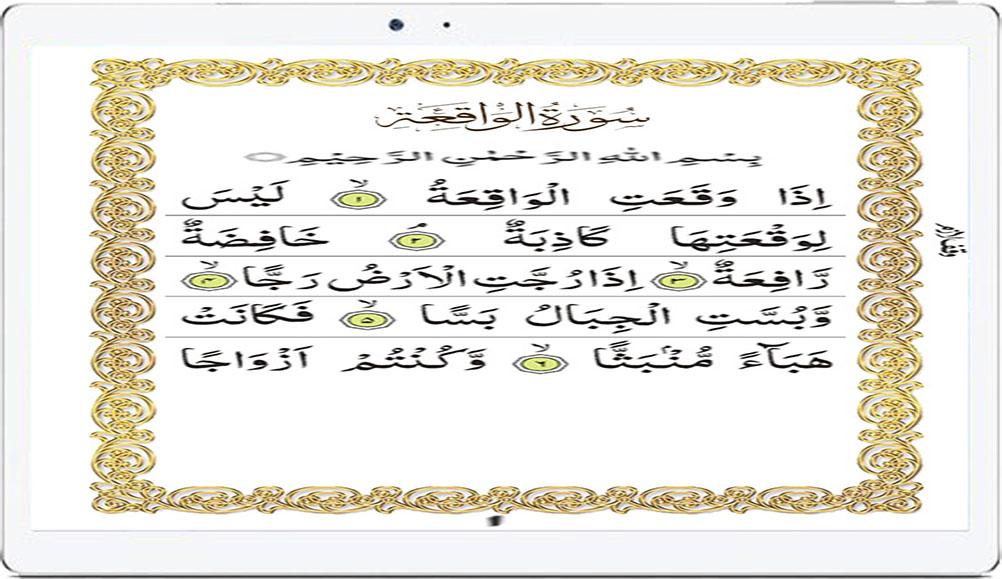 سُوۡرَةُ الۡوَاقِعَةِ
بِسۡمِ اللّٰهِ الرَّحۡمٰنِ الرَّحِيۡمِ
اِذَا وَقَعَتِ الۡوَاقِعَةُ ۙ‏﴿۱﴾ لَيۡسَ
لِوَقۡعَتِهَا كَاذِبَةٌ ۘ‏﴿۲﴾ خَافِضَةٌ
رَّافِعَةٌ ۙ‏﴿۳﴾ اِذَا رُجَّتِ الۡاَرۡضُ رَجًّا ۙ‏﴿۴﴾
وَّبُسَّتِ الۡجِبَالُ بَسًّا ۙ‏﴿۵﴾ فَكَانَتۡ
هَبَآءً مُّنۡۢبَثًّا ۙ‏﴿۶﴾ وَّكُنۡتُمۡ اَزۡوَاجًا
وقف لازم